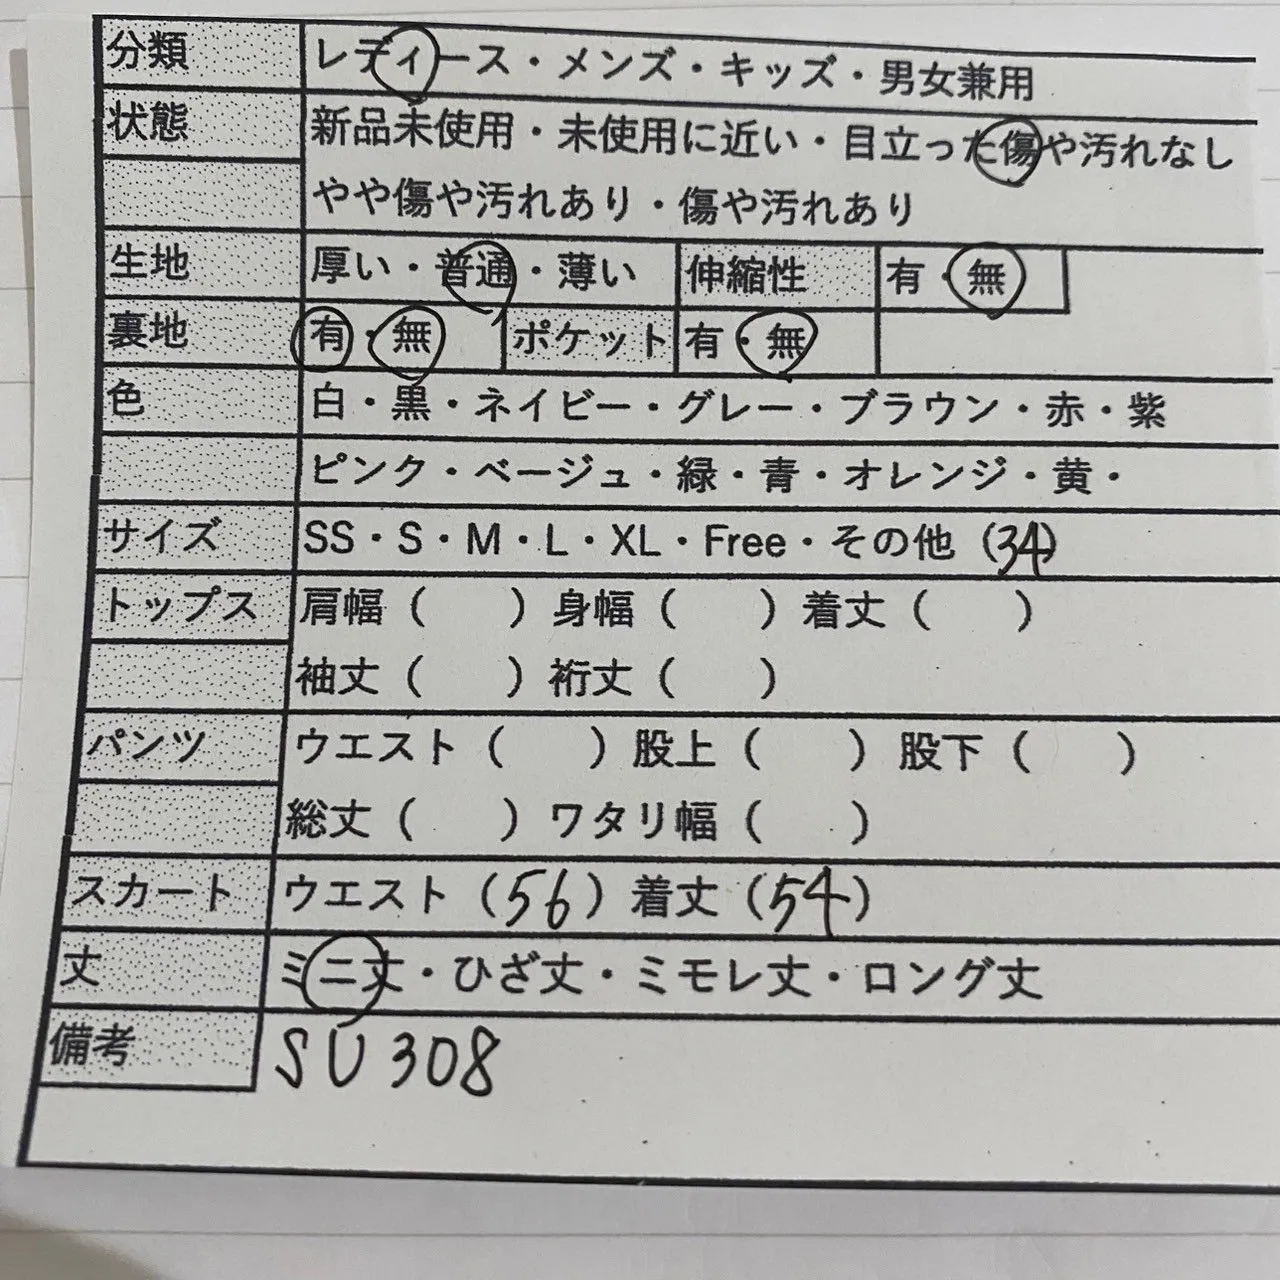 分類 レディース・メンズ・キッズ・男女兼用
状態 新品未使用・未使用に近い・目立った傷や汚れなし
やや傷や汚れあり・傷や汚れあり
生地 厚い・普通・薄い 伸縮性 有・無
裏地 有・無 ポケット 有・無
色 白・黒・ネイビー・グレー・ブラウン・赤・紫
ピンク・ベージュ・緑・青・オレンジ・黄・
サイズ SS・S・M・L・XL・Free・その他（34）
トップス 肩幅（　　）身幅（　　）着丈（　　）
袖丈（　　）裄丈（　　）
パンツ ウエスト（　　）股上（　　）股下（　　）
総丈（　　）ワタリ幅（　　）
スカート ウエスト（56）着丈（54）
丈 ミニ丈・ひざ丈・ミモレ丈・ロング丈
備考 SU308